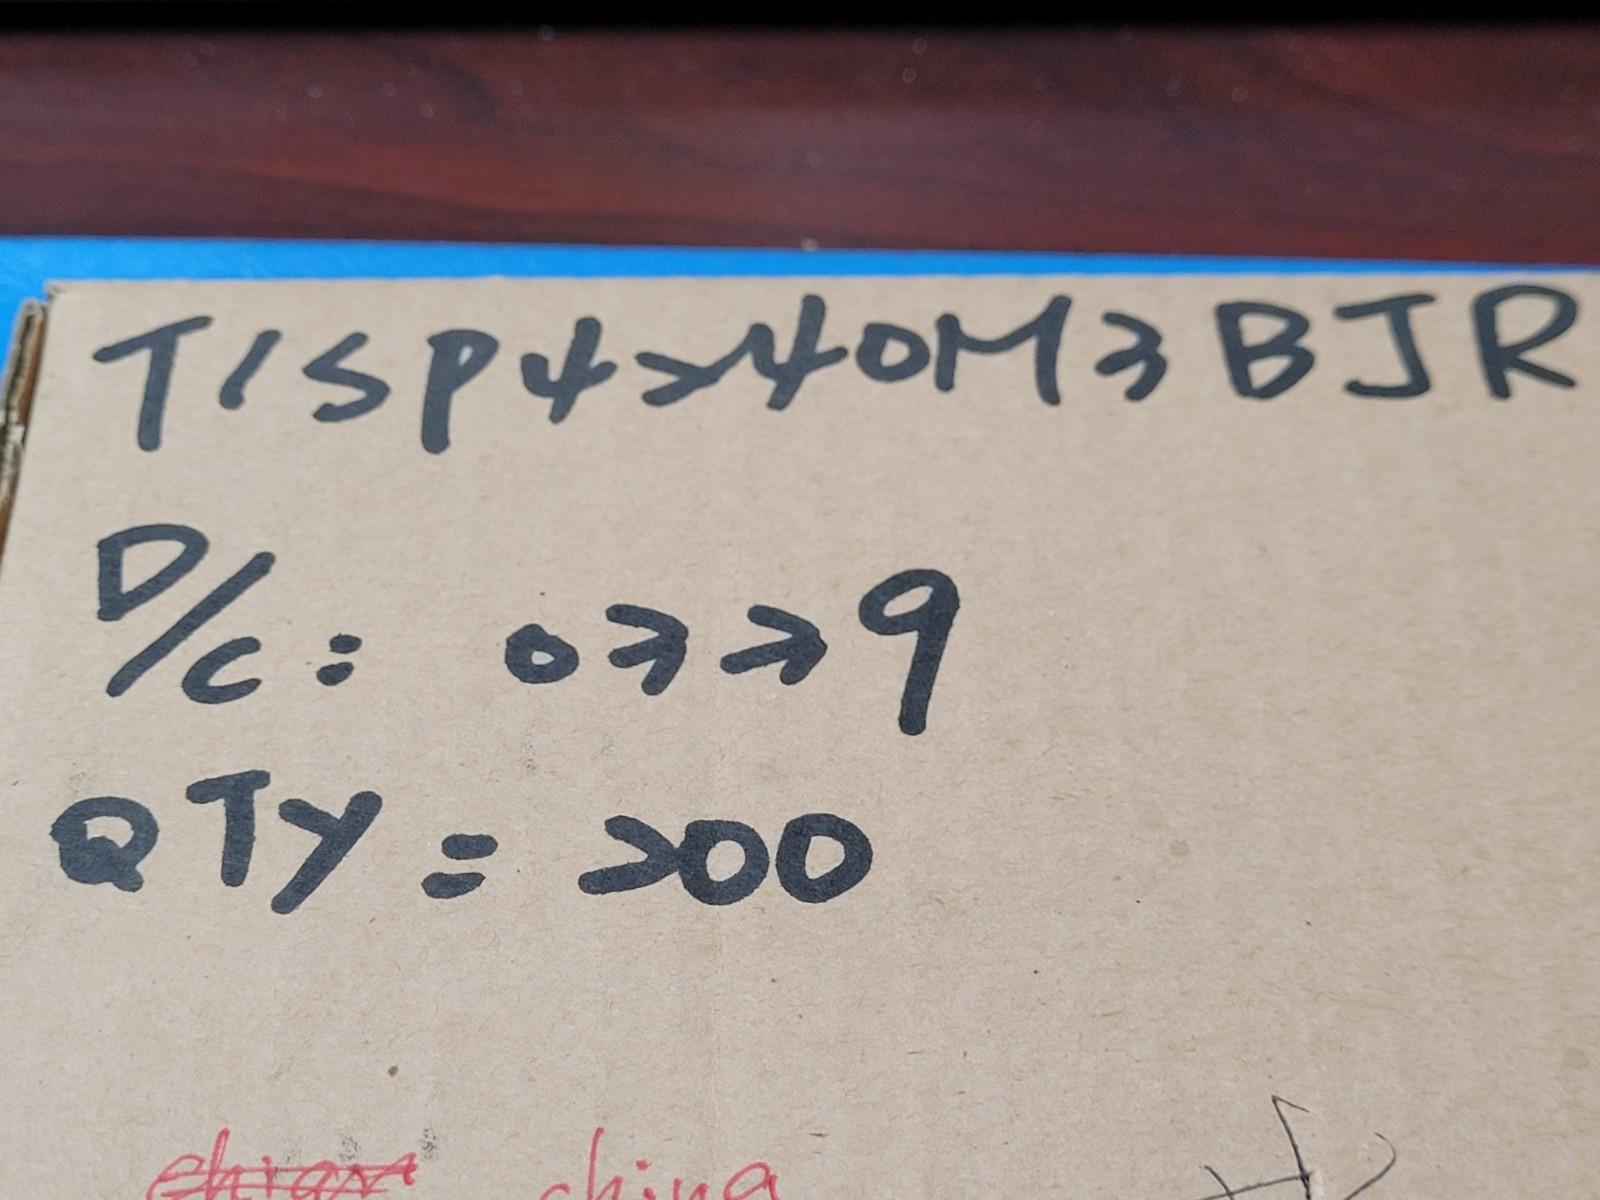 TISP4240M3BJR
D/C: 0339
QTY = 200
china